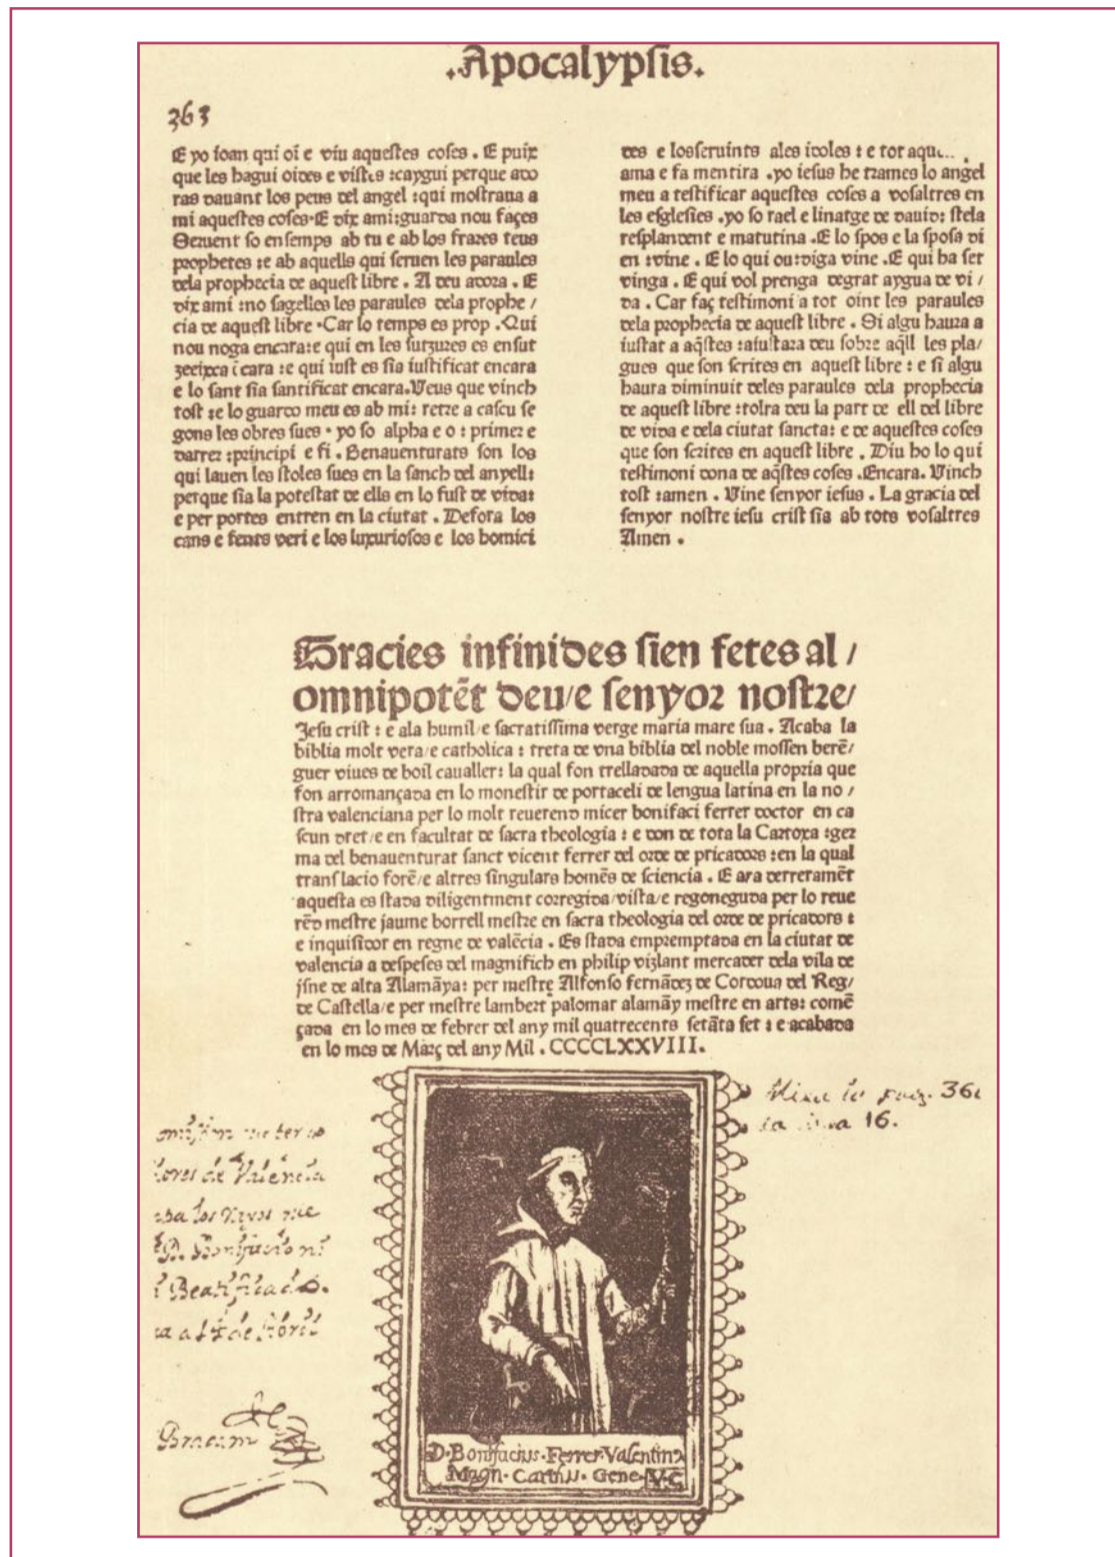 .Apocalypsis.
363
E yo ioan qui oi e viu aquestes coses . E puix
que les hagui oides e vistes :caygui perque ado
ras dauant los peus del angel :qui mostraua a
mi aquestes coses·E dix ami:guarda nou façes
Seruent so ensemps ab tu e ab los frares teus
prophetes :e ab aquells qui seruen les paraules
dela prophecia de aquest libre . A deu adora . E
dix ami :no sagelles les paraules dela prophe /
cia de aquest libre ·Car lo temps es prop .Qui
nou noga encara:e qui en les sutzures es ensut
zeeixca ĩcara :e qui iust es sia iustificat encara
e lo sant sia santificat encara.Ueus que vinch
tost :e lo guardo meu es ab mi: retre a cascu se
gons les obres sues · yo so alpha e o : primer e
darrer :principi e fi . Benauenturats son los
qui lauen les stoles sues en la sanch del anyell:
perque sia la potestat de ells en lo fust de vida:
e per portes entren en la ciutat . Defora los
cans e fents veri e los luxuriosos e los homici
des e losseruints ales idoles : e tot aqu
ama e fa mentira .yo iesus he trames lo angel
meu a testificar aquestes coses a vosaltres en
les esglesies .yo so rael e linatge de dauid: stela
resplandent e matutina .E lo spos e la sposa di
en :vine . E lo qui ou:diga vine .E qui ha set
vinga . E qui vol prenga degrat aygua de vi /
da . Car faç testimoni a tot oint les paraules
dela prophecia de aquest libre . Si algu haura a
iustat a aq̃stes :aiustara deu sobre aq̃ll les pla/
gues que son scrites en aquest libre : e si algu
haura diminuit deles paraules dela prophecia
de aquest libre :tolra deu la part de ell del libre
de vida e dela ciutat sancta: e de aquestes coses
que son scrites en aquest libre . Diu ho lo qui
testimoni dona de aq̃stes coses .Encara. Vinch
tost :amen . Vine senyor iesus . La gracia del
senyor nostre iesu crist sia ab tots vosaltres
Amen .
Gracies infinides sien fetes al /
omnipotẽt deu/e senyor nostre/
Jesu crist : e ala humil/e sacratissima verge maria mare sua . Acaba la
biblia molt vera/e catholica : treta de vna biblia del noble mossen berẽ/
guer viues de boil caualler: la qual fon trelladada de aquella propria que
fon arromançada en lo monestir de portaceli de lengua latina en la no /
stra valenciana per lo molt reuerend micer bonifaci ferrer doctor en ca
scun dret/e en facultat de sacra theologia : e don de tota la Cartoxa :ger
ma del benauenturat sanct vicent ferrer del orde de pricadors :en la qual
translacio forẽ/e altres singulars homẽs de sciencia . E ara derreramẽt
aquesta es stada diligentment corregida/vista/e regoneguda per lo reue
rẽd mestre jaume borrell mestre en sacra theologia del orde de pricadors :
e inquisidor en regne de valẽcia . Es stada empremptada en la ciutat de
valencia a despeses del magnifich en philip vizlant mercader dela vila de
jsne de alta Alamãya: per mestre Alfonso fernãdez de Cordoua del Reg/
de Castella/e per mestre lambert palomar alamãy mestre en arts: comẽ
çada en lo mes de febrer del any mil quatrecents setãta set : e acabada
en lo mes de Març del any Mil . CCCCLXXVIII.
16.
de Valencia
Beatificado.
de Abril
D·Bonifacius·Ferrer·Valentin9
Magn·Cartus·Gene·V·C